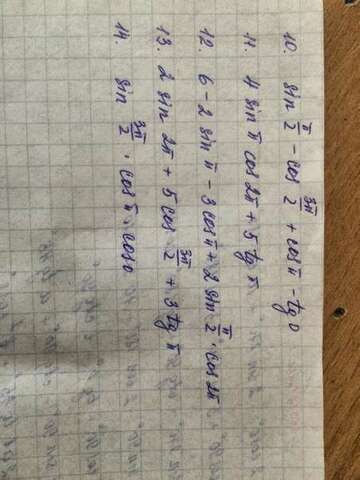 10. sin π/2 - cos 3π/2 + cos π - tg 0
11. 4 sin π cos 2π + 5 tg π
12. 6 - 2 sin π - 3 cos π + 2 sin π/2 · cos 2π
13. 2 sin 2π + 5 cos 3π/2 + 3 tg π
14. sin 3π/2 · cos π · cos 0